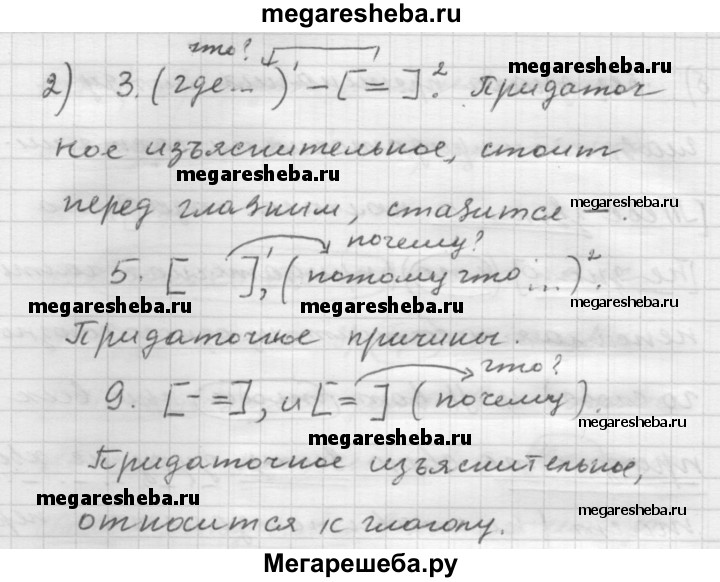 megaresheba.ru
что?
2) 3. (где...)¹ – [=]². Придаточ
megaresheba.ru
ное изъяснительное, стоит
megaresheba.ru
перед главним, ставится – .
megaresheba.ru
почему?
5. [ ]¹, (потому что ...)².
megaresheba.ru megaresheba.ru megaresheba.ru
Придаточное причины.
что?
9. [- =], и [= ] (почему).
megaresheba.ru megaresheba.ru
Придаточное изъяснительное,
megaresheba.ru megaresheba.ru
относится к глаголу.
Мегарешеба.ру